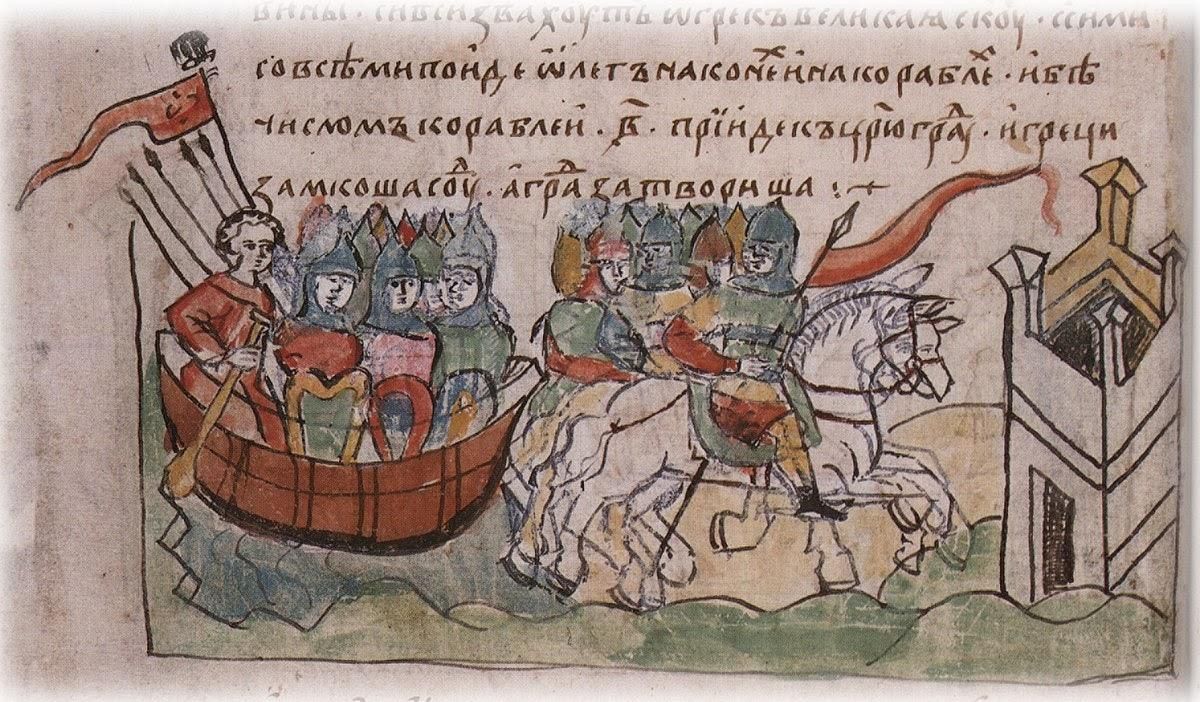 вины · си вси зваху̑ть ѿ грекъ великаꙗ скоуѳ · с сими
со всѣми поиде ѡлегъ на конехъ и на кораблехъ · и бѣ
числомъ кораблеи · в҃ · прїиде къ цр҃югра́ду · и греци
замкоша соудъ · а градъ затвориша :